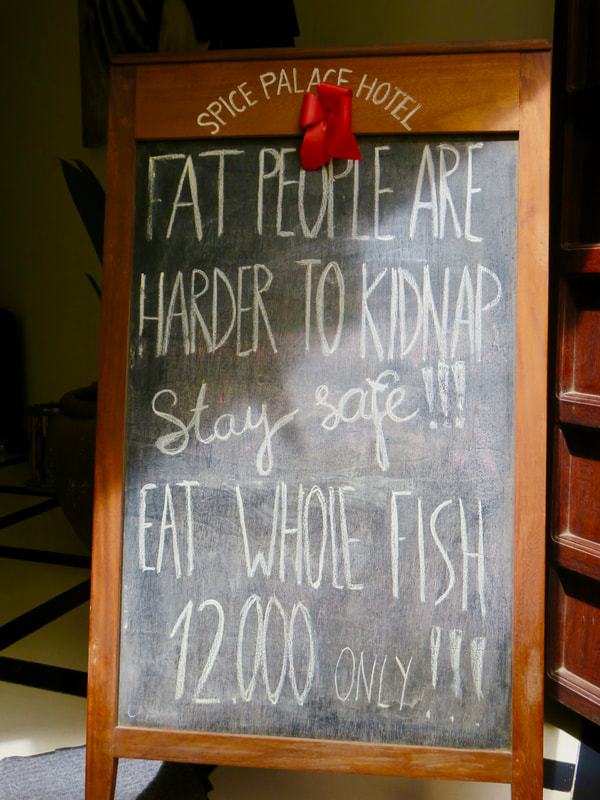 SPICE PALACE HOTEL
FAT PEOPLE ARE
HARDER TO KIDNAP
Stay safe!!!
EAT WHOLE FISH
12.000 ONLY!!!